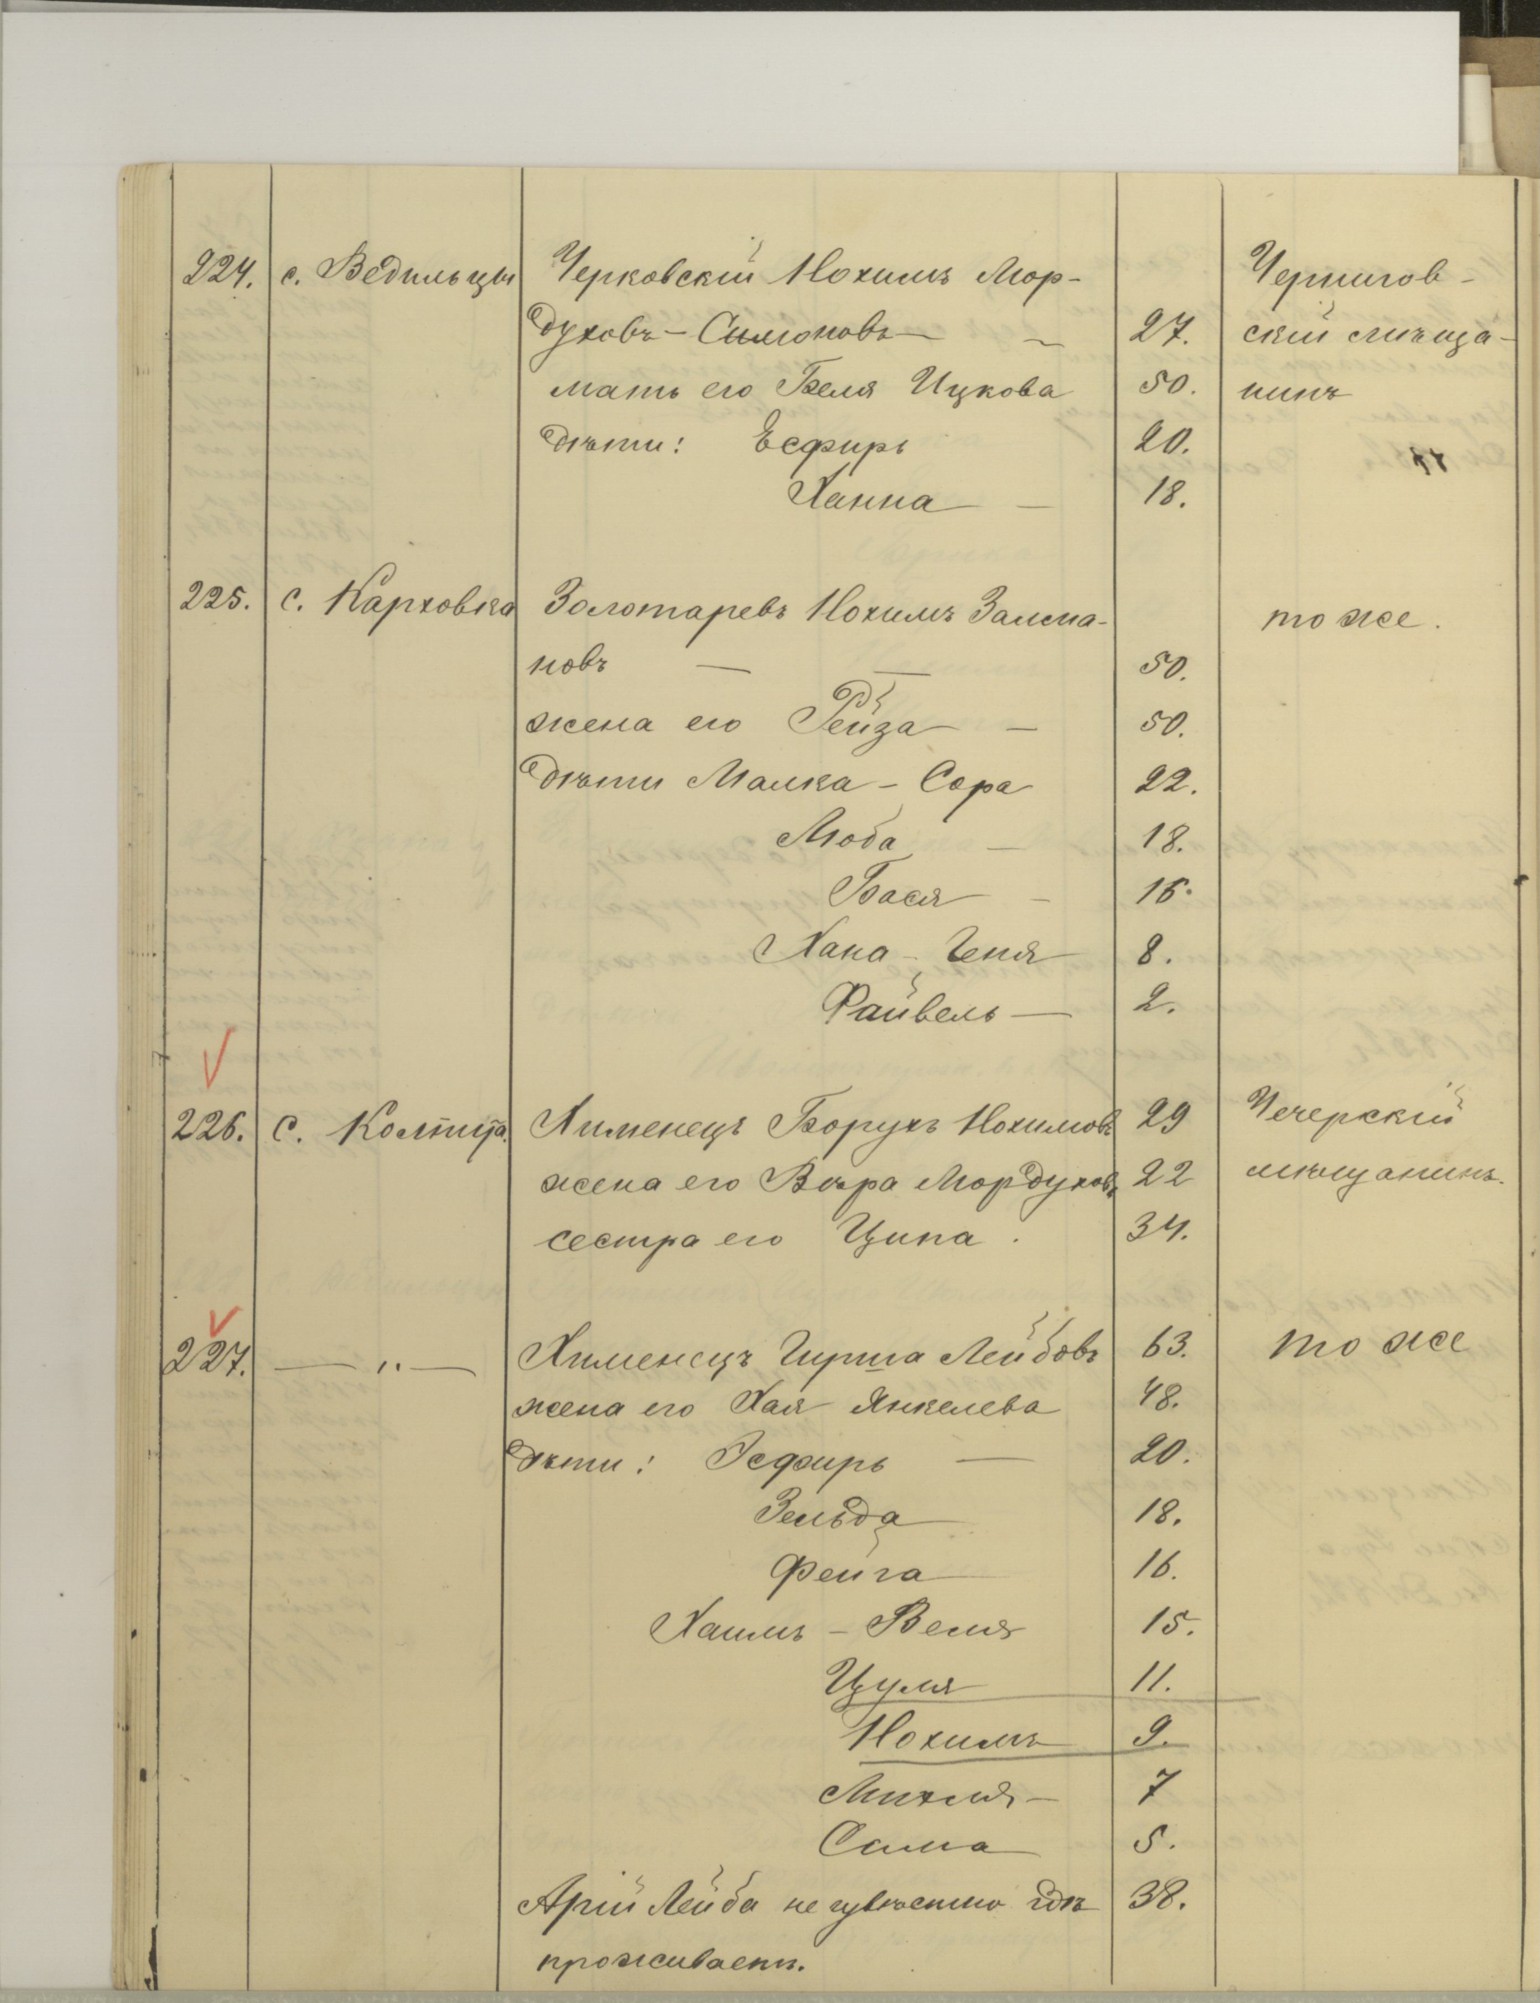 224. с. Ведильцы Черковскій Нохимъ Мор- Чернигов-
духовъ-Симоновъ — 27. скій мѣща-
мать его Беля Ицкова 50. нинъ
дѣти: Есфирь 20.
Ханна — 18.
225. с. Карховка Золотаревъ Нохимъ Залма- то же.
новъ — — 50.
жена его Рейза — 50.
дѣти Малка-Сора 22.
Люба — 18.
Бася — 16.
Хана-Геня 8.
Файвель — 2.
226. с. Хименецъ Борухъ Нохимовъ 29 Чечерскій
жена его Вѣра Мордухов. 22 мѣщанинъ.
сестра его Ципа. 34.
227. — „ — Хименецъ Гирша Лейбовъ 63. то же
жена его Хая Янкелева 48.
дѣти: Эсфирь — 20.
Зельда 18.
Фейга 16.
Хаимъ-Веля 15.
Цуля 11.
Нохимъ 9.
Михля — 7
Сима 5.
Арій Лейба неизвѣстно гдѣ 38.
проживаетъ.